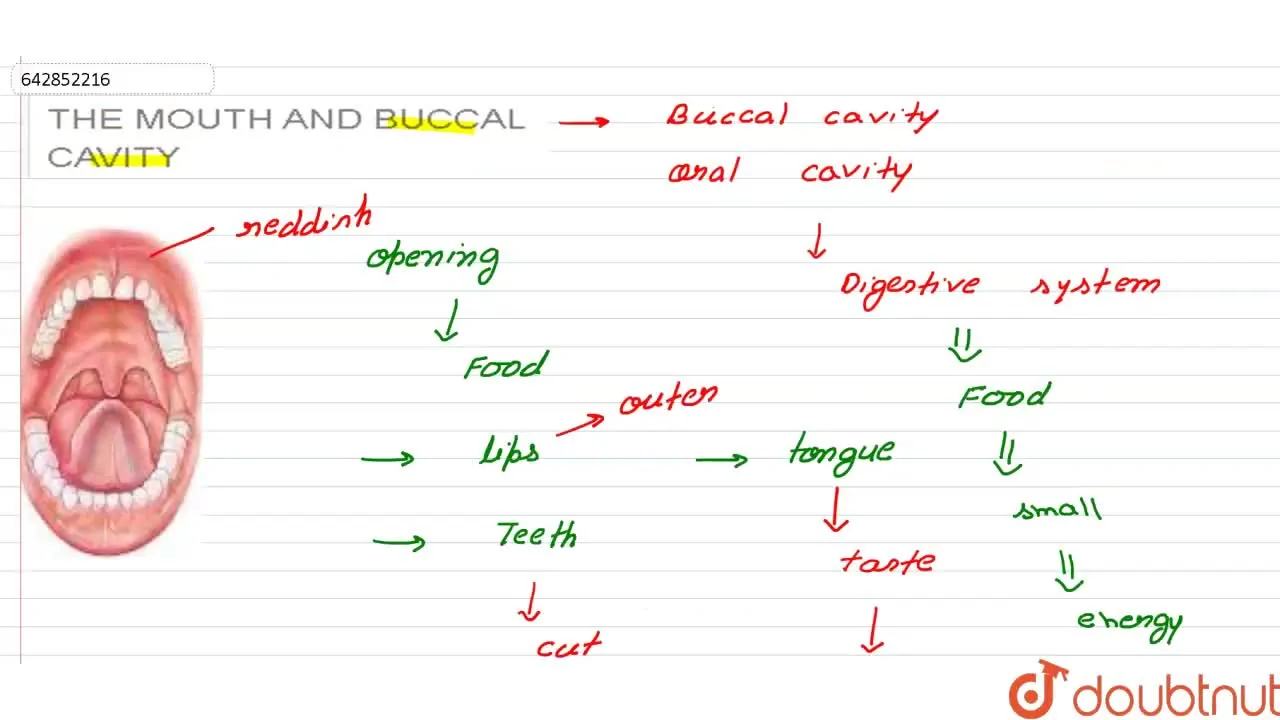 642852216
THE MOUTH AND BUCCAL
CAVITY
Buccal cavity
oral cavity
reddish
opening
Digestive system
Food
Food
outer
lips
tongue
small
Teeth
taste
energy
cut
doubtnut